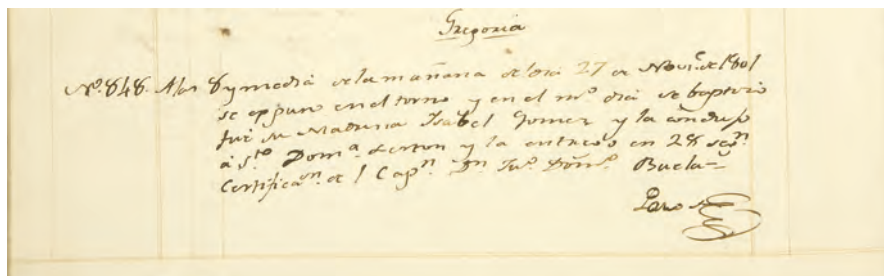 Gregoria
Nº. 848. A las 8 y media de la mañana del dia 27 de Nov.e de 1801
se expuso en el torno y en el m.o dia se baptizo
fue su Madrina Isabel Gomez y la condujo
a S.to Dom.o y la entrego en 28 segn.
Certificaon. del Capn. Dn. Buela